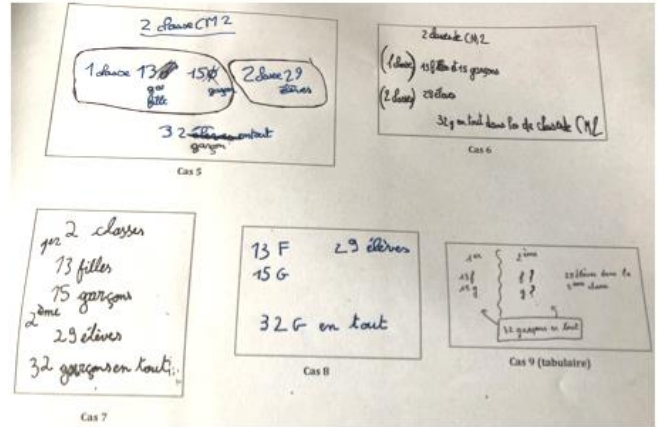 2 classe CM2
1 classe 13 15 2 classe 29
gar garçon élèves
fille
32 élèves en tout
garçon
Cas 5
2 classe de CM2
(1 classe) 13 filles et 15 garçons
(2 classe) 29 élèves
32 g en tout dans les de classe de CM2
Cas 6
1er 2 classes
13 filles
15 garçons
2ème
29 élèves
32 garçons en tout
Cas 7
13 F 29 élèves
15 G
32 G en tout
Cas 8
1er 2ème
13f f ? 29 élèves dans la
15g g ? 2ème classe
32 garçons en tout
Cas 9 (tabulaire)